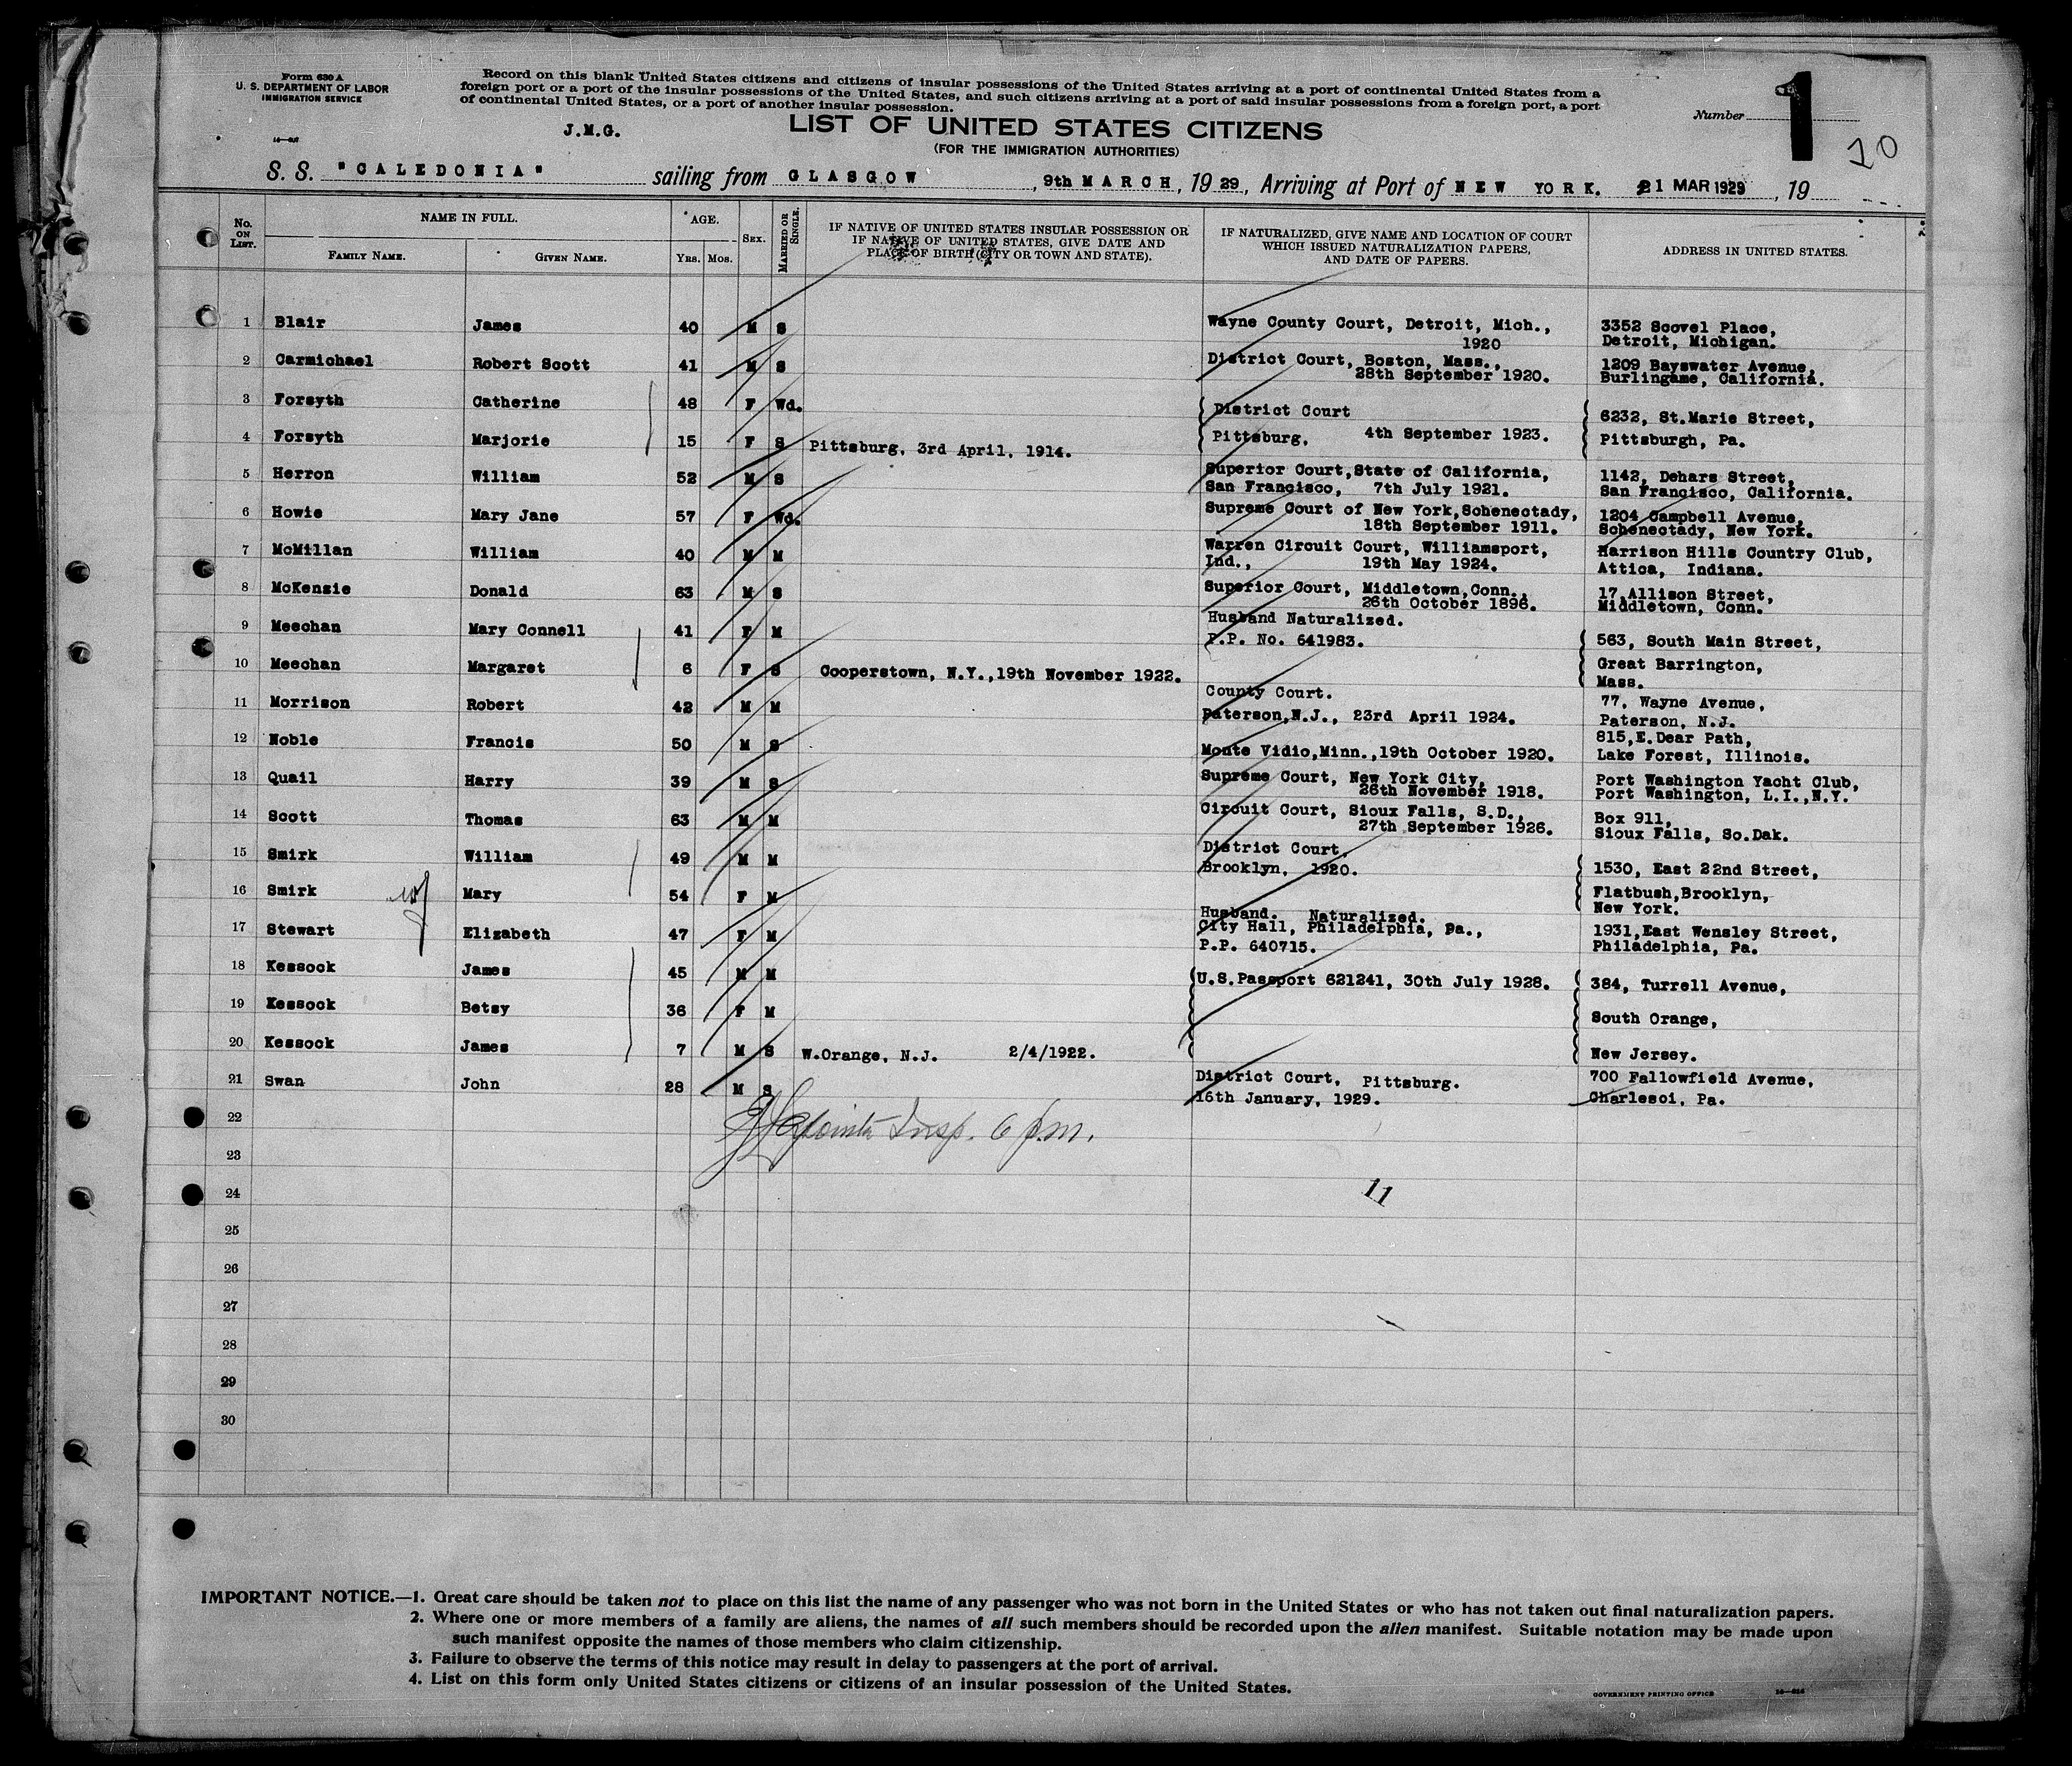 Form 630 A
U. S. DEPARTMENT OF LABOR
IMMIGRATION SERVICE
Record on this blank United States citizens and citizens of insular possessions of the United States arriving at a port of continental United States from a
foreign port or a port of the insular possessions of the United States, and such citizens arriving at a port of said insular possessions from a foreign port, a port
of continental United States, or a port of another insular possession.
J.M.G.
LIST OF UNITED STATES CITIZENS
(FOR THE IMMIGRATION AUTHORITIES)
Number 1
10
S. S. "CALEDONIA" sailing from GLASGOW, 9th MARCH, 1929, Arriving at Port of NEW YORK. 21 MAR 1929, 19
No. ON LIST.
NAME IN FULL.
FAMILY NAME. GIVEN NAME.
AGE.
YRS. MOS.
SEX.
MARRIED OR SINGLE.
IF NATIVE OF UNITED STATES INSULAR POSSESSION OR
IF NATIVE OF UNITED STATES, GIVE DATE AND
PLACE OF BIRTH (CITY OR TOWN AND STATE).
IF NATURALIZED, GIVE NAME AND LOCATION OF COURT
WHICH ISSUED NATURALIZATION PAPERS,
AND DATE OF PAPERS.
ADDRESS IN UNITED STATES.
1 Blair James 40 M S Wayne County Court, Detroit, Mich., 3352 Scovel Place,
1920 Detroit, Michigan.
2 Carmichael Robert Scott 41 M S District Court, Boston, Mass., 1209 Bayswater Avenue,
28th September 1920. Burlingame, California.
3 Forsyth Catherine 48 F Wd. District Court 6232, St.Marie Street,
4 Forsyth Marjorie 15 F S Pittsburg, 3rd April, 1914. Pittsburg, 4th September 1923. Pittsburgh, Pa.
5 Herron William 52 M S Superior Court,State of California, 1142, Dehars Street,
San Francisco, 7th July 1921. San Francisco, California.
6 Howie Mary Jane 57 F Wd. Supreme Court of New York,Schenectady, 1204 Campbell Avenue,
18th September 1911. Schenectady, New York.
7 McMillan William 40 M M Warren Circuit Court, Williamsport, Harrison Hills Country Club,
Ind., 19th May 1924. Attica, Indiana.
8 McKensie Donald 63 M S Superior Court, Middletown,Conn., 17,Allison Street,
26th October 1896. Middletown, Conn.
9 Meechan Mary Connell 41 F M Husband Naturalized.
P.P. No. 641983. 563, South Main Street,
10 Meechan Margaret 6 F S Cooperstown, N.Y.,19th November 1922. Great Barrington,
Mass.
11 Morrison Robert 42 M M County Court. 77, Wayne Avenue,
Paterson,N.J., 23rd April 1924. Paterson, N.J.
12 Noble Francis 50 M S Monte Vidio,Minn.,19th October 1920. 815,E.Dear Path,
Lake Forest, Illinois.
13 Quail Harry 39 M S Supreme Court, New York City, Port Washington Yacht Club,
26th November 1918. Port Washington, L.I.,N.Y.
14 Scott Thomas 63 M M Circuit Court, Sioux Falls, S.D., Box 911,
27th September 1926. Sioux Falls, So.Dak.
15 Smirk William 49 M M District Court,
Brooklyn, 1920. 1530, East 22nd Street,
16 Smirk Mary 54 F M Flatbush,Brooklyn,
New York.
Husband. Naturalized.
17 Stewart Elizabeth 47 F M City Hall, Philadelphia, Pa., 1931,East Wensley Street,
P.P. 640715. Philadelphia, Pa.
18 Kessock James 45 M M U.S.Passport 621241, 30th July 1928. 384, Turrell Avenue,
19 Kessock Betsy 36 F M South Orange,
20 Kessock James 7 M S W.Orange, N.J. 2/4/1922. New Jersey.
21 Swan John 28 M S District Court, Pittsburg. 700 Fallowfield Avenue,
16th January, 1929. Charlesoi, Pa.
22
Insp. 6 p.m.
23
24
11
25
26
27
28
29
30
IMPORTANT NOTICE.—1. Great care should be taken not to place on this list the name of any passenger who was not born in the United States or who has not taken out final naturalization papers.
2. Where one or more members of a family are aliens, the names of all such members should be recorded upon the alien manifest. Suitable notation may be made upon
such manifest opposite the names of those members who claim citizenship.
3. Failure to observe the terms of this notice may result in delay to passengers at the port of arrival.
4. List on this form only United States citizens or citizens of an insular possession of the United States.
GOVERNMENT PRINTING OFFICE